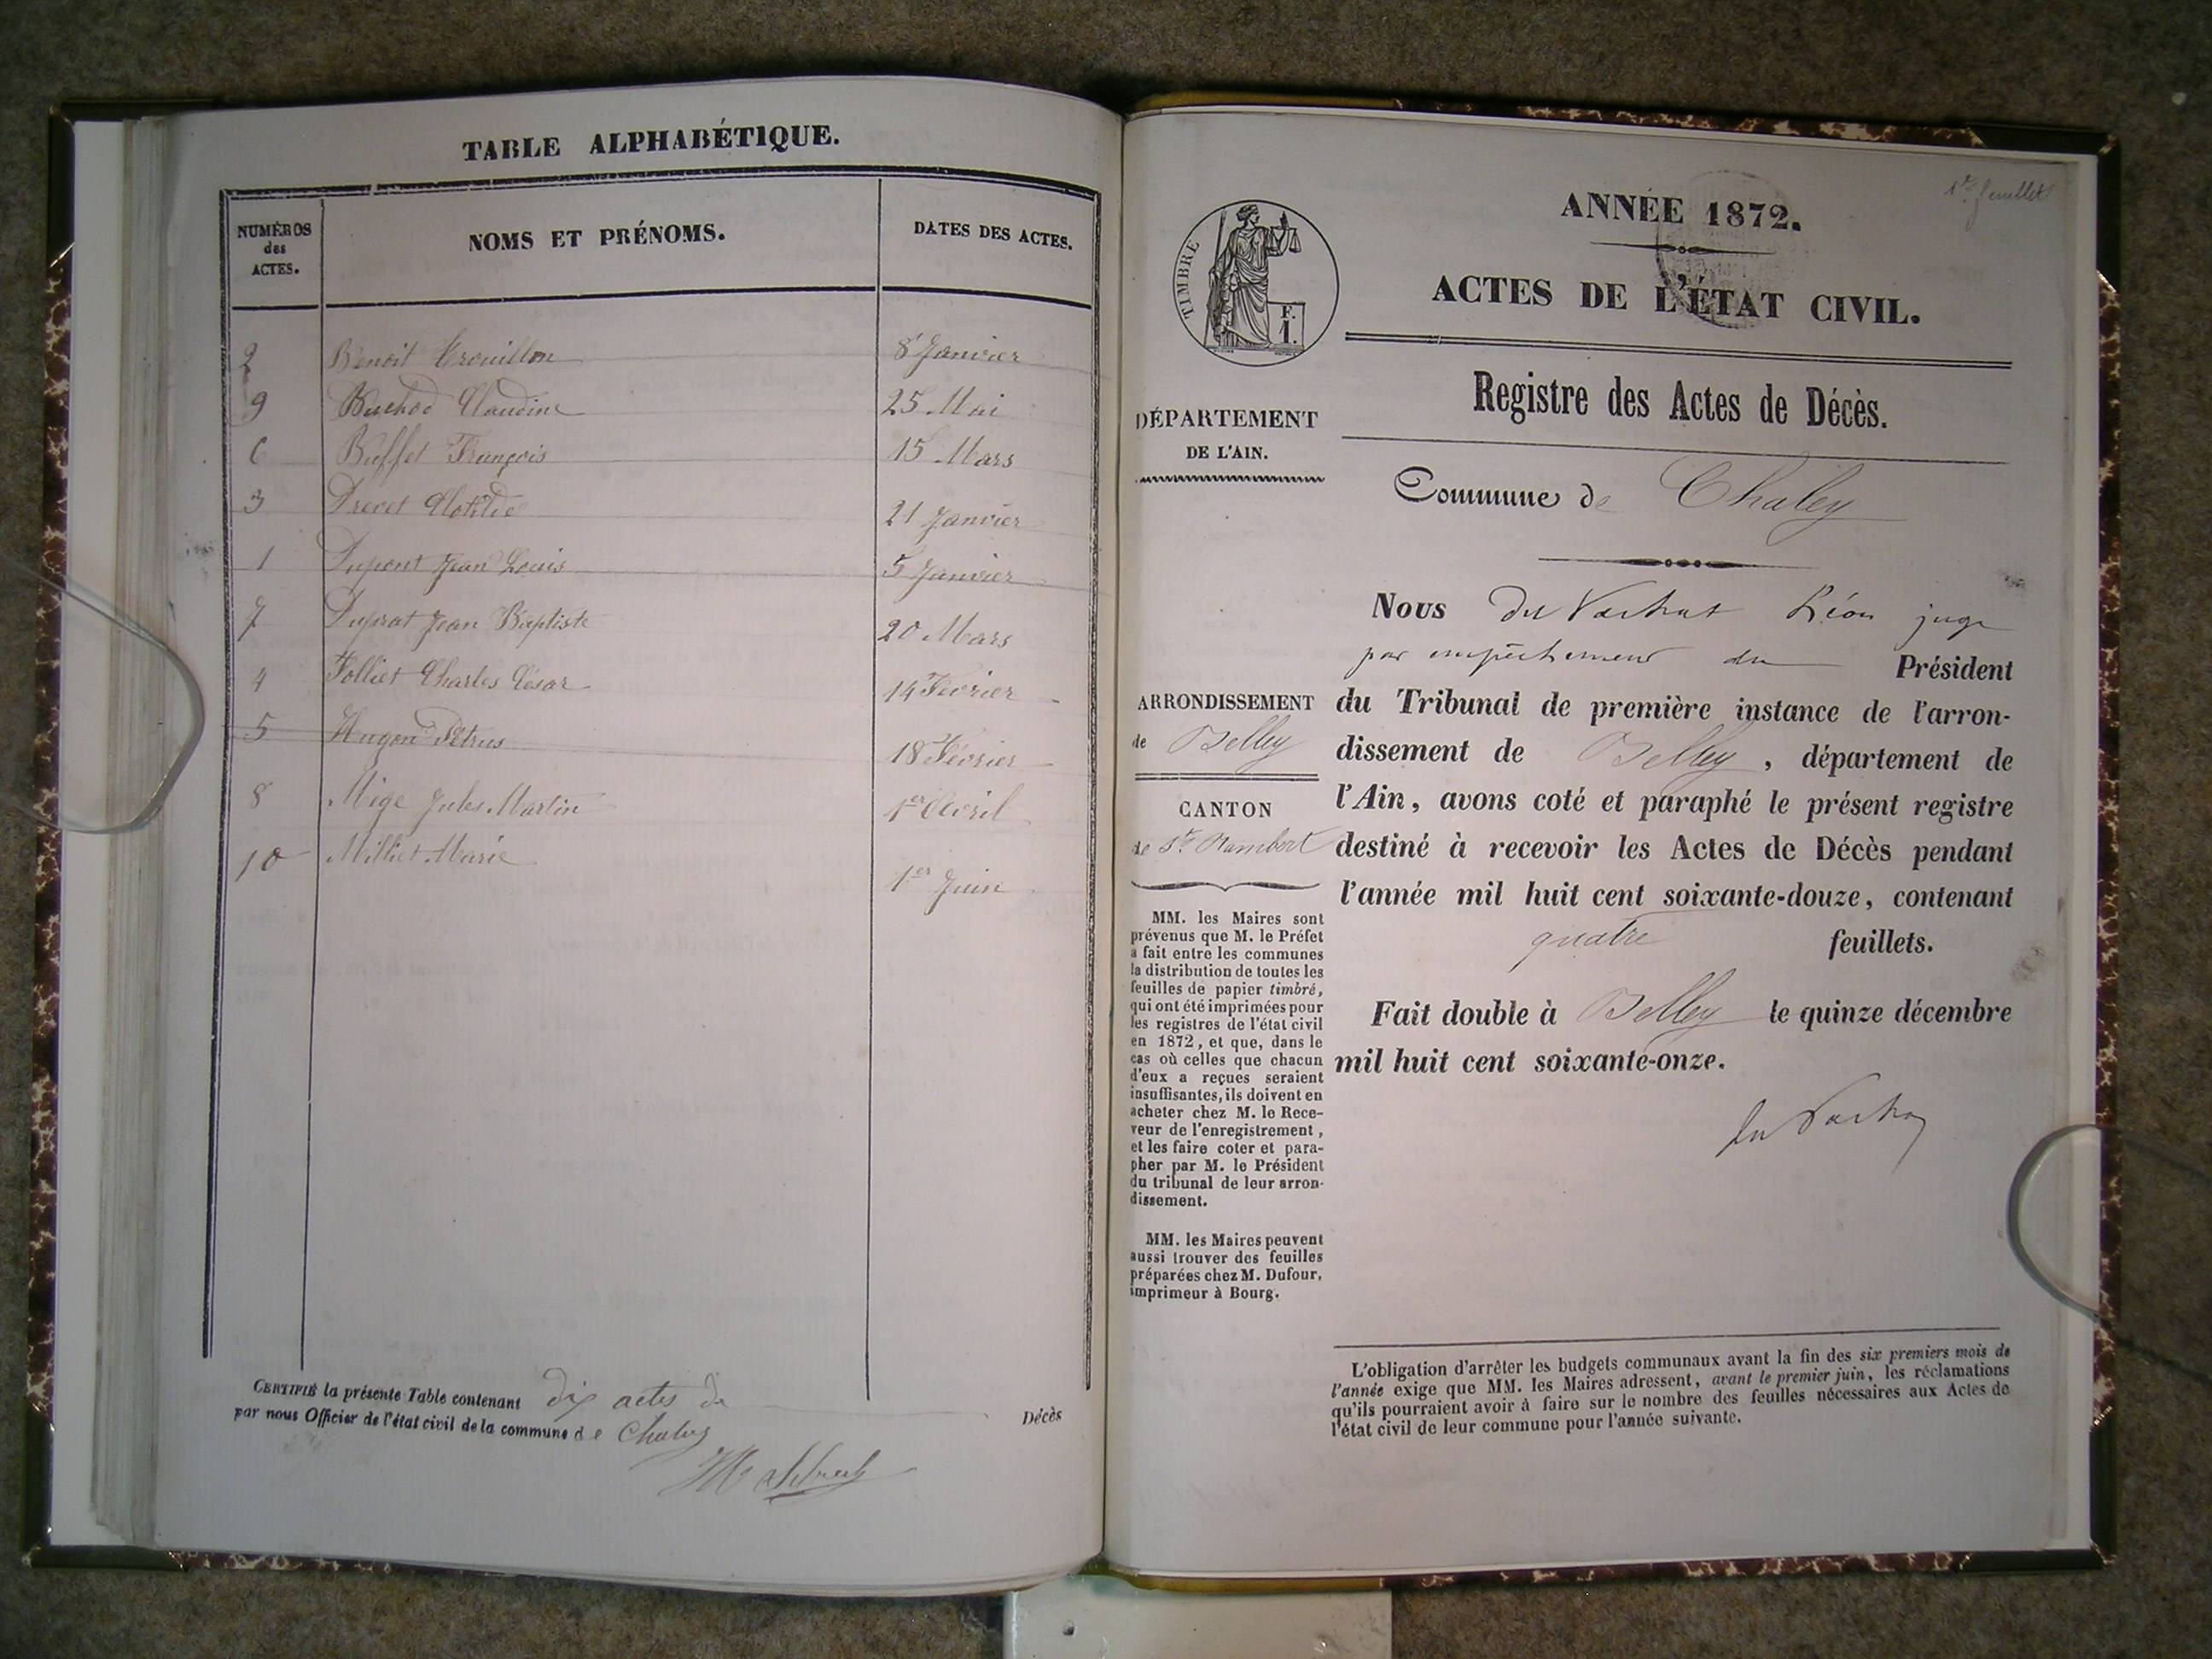 TABLE ALPHABÉTIQUE.
NUMÉROS des ACTES.
NOMS ET PRÉNOMS.
DATES DES ACTES.
2 Benoit Crouillon 8 Janvier
9 Buchod Claudine 25 Mai
6 Buffet François 15 Mars
3 Drevet Clotilde 21 Janvier
1 Dupont Jean Louis 5 Janvier
7 Duprat Jean Baptiste 20 Mars
4 Folliet Charles César 14 Février
5 Hugon Pétrus 18 Février
8 Mige Jules Martin 1er Avril
10 Milliet Marie 1er Juin
CERTIFIÉ la présente Table contenant dix actes de Décès
par nous Officier de l'état civil de la commune de Chaley
1er feuillet
ANNÉE 1872.
ACTES DE L'ÉTAT CIVIL.
TIMBRE
F.
1.
Registre des Actes de Décès.
DÉPARTEMENT
DE L'AIN.
Commune de Chaley
ARRONDISSEMENT
de Belley
CANTON
de St. Rambert
MM. les Maires sont
prévenus que M. le Préfet
a fait entre les communes
la distribution de toutes les
feuilles de papier timbré,
qui ont été imprimées pour
les registres de l'état civil
en 1872, et que, dans le
cas où celles que chacun
d'eux a reçues seraient
insuffisantes, ils doivent en
acheter chez M. le Rece-
veur de l'enregistrement,
et les faire coter et para-
pher par M. le Président
du tribunal de leur arron-
dissement.
MM. les Maires peuvent
aussi trouver des feuilles
préparées chez M. Dufour,
imprimeur à Bourg.
Nous du Vachat Léon juge
par empêchement du Président
du Tribunal de première instance de l'arron-
dissement de Belley, département de
l'Ain, avons coté et paraphé le présent registre
destiné à recevoir les Actes de Décès pendant
l'année mil huit cent soixante-douze, contenant
quatre feuillets.
Fait double à Belley le quinze décembre
mil huit cent soixante-onze.
du Vachat
L'obligation d'arrêter les budgets communaux avant la fin des six premiers mois de
l'année exige que MM. les Maires adressent, avant le premier juin, les réclamations
qu'ils pourraient avoir à faire sur le nombre des feuilles nécessaires aux Actes de
l'état civil de leur commune pour l'année suivante.